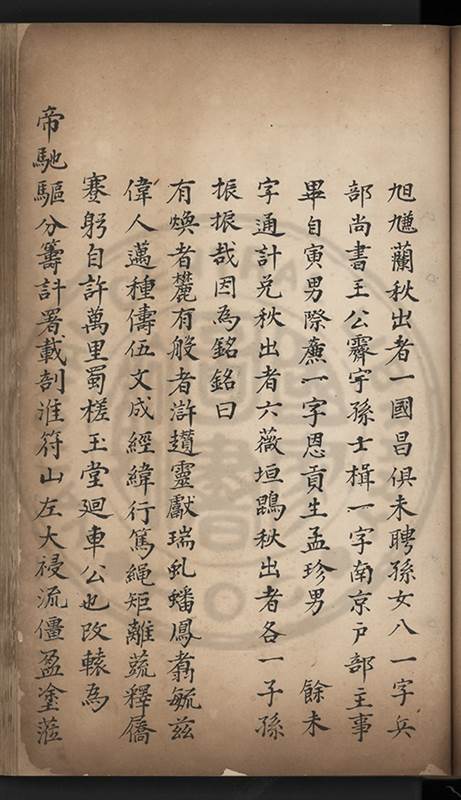 旭旭蘭秋出者一國昌俱未聘孫女八一字兵
部尚書王公霽宇孫士楫一字南京戶部主事
畢自寅男際廉一字恩貢生孟珍男 餘未
字通計兌秋出者六薇垣鵾秋出者各一子孫
振振哉因為銘銘曰
有煥者麓有般者滸趲靈獻瑞虬蟠鳳翥毓茲
偉人邁種儔伍文成經緯行篤繩矩離蔬釋僑
蹇躬自許萬里蜀槎玉堂迴車公也改轅為
帝馳驅分籌計署載剖淮符山左大祲流僵盈塗蒞